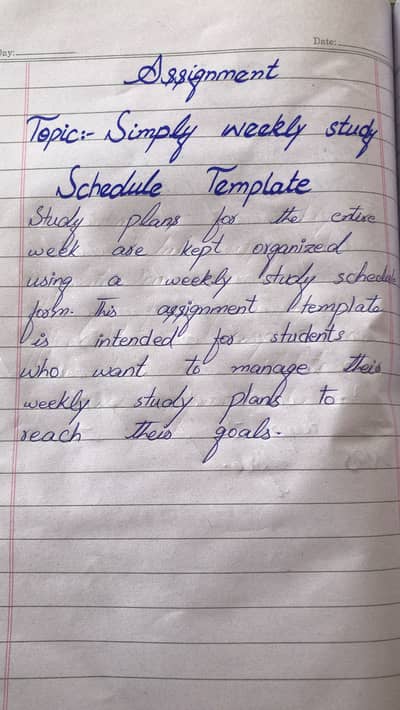 Day:
Date:
Assignment
Topic:- Simply weekly study
Schedule Template
Study plans for the entire
week are kept organized
using a weekly study schedule
form. This assignment template
is intended for students
who want to manage their
weekly study plans to
reach their goals.